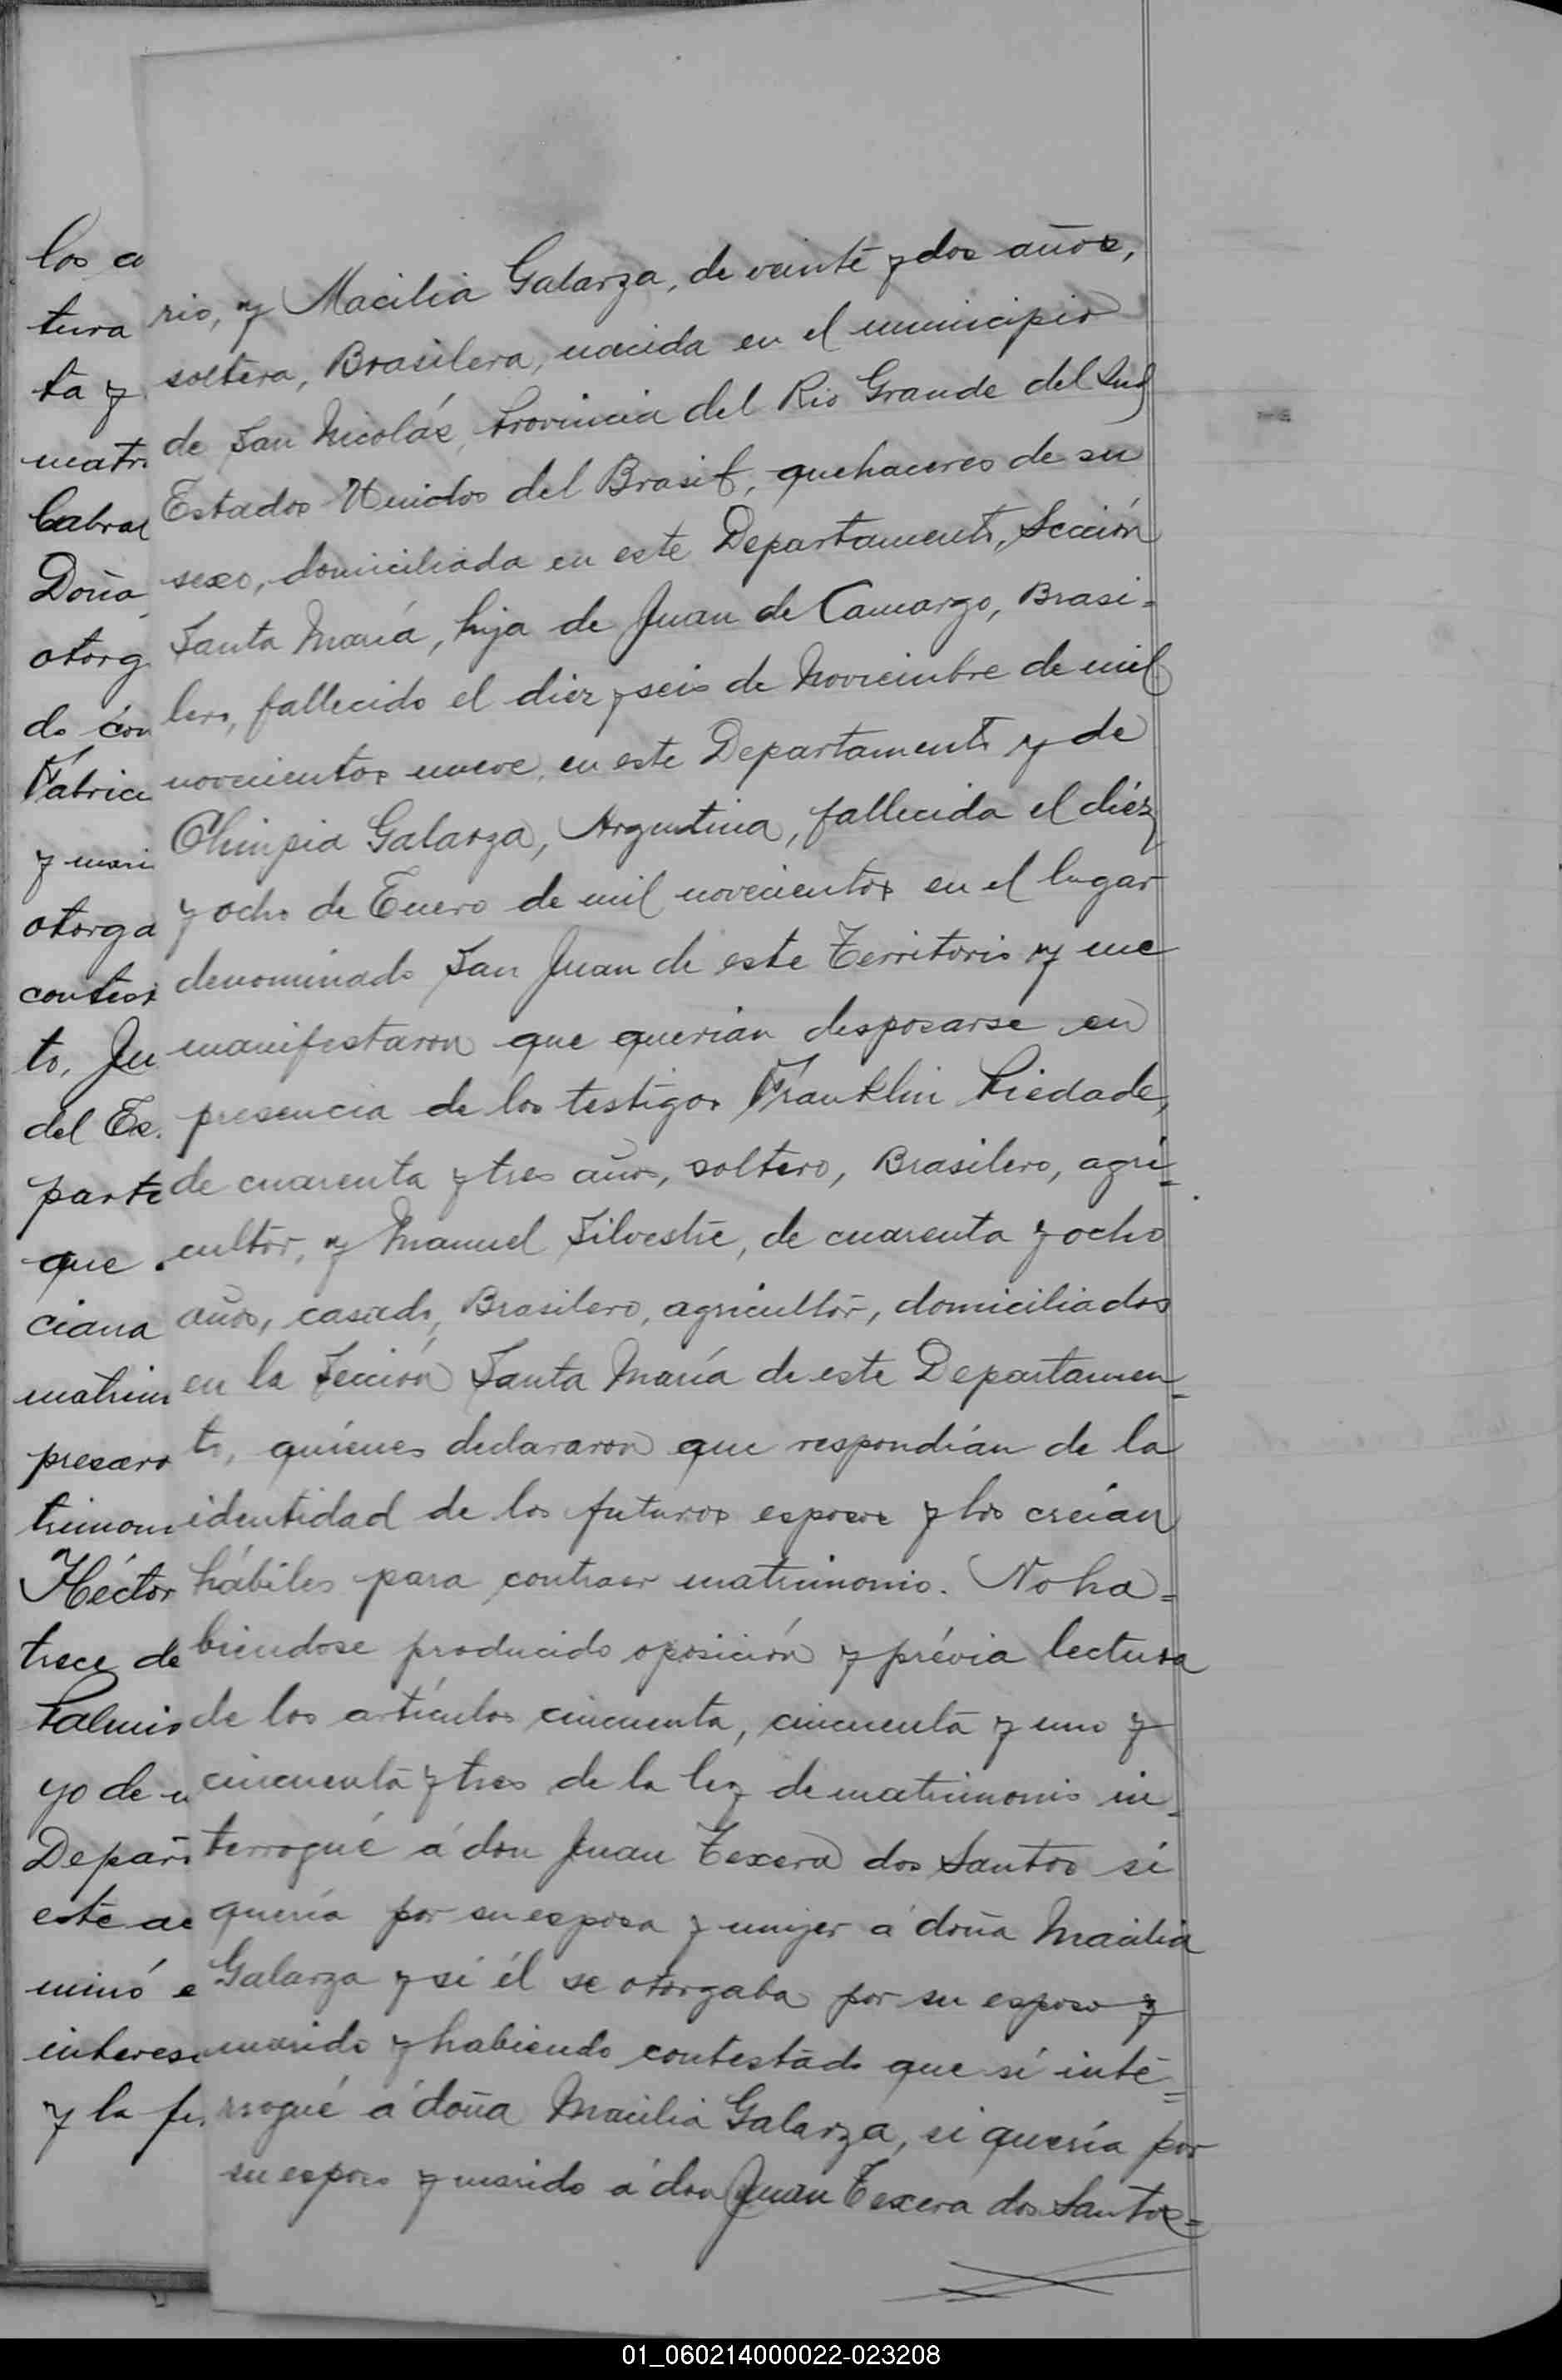 los a
tura
ta y
matri
Cabral
Doña
otorg
do con
Fabrici
y mari
otorga
contest
to, Ju
del Es.
parte
que
ciana
matrim
presaro
trimoni
Héctor
trece de
Palmis
yo de u
Depart
este ac
minó e
interes
y la fi.
rio, y Macilia Galarza, de veinte y dos años,
soltera, Brasilera, nacida en el municipio
de San Nicolás, Provincia del Rio Grande del Sud
Estados Unidos del Brasil, quehaceres de su
sexo, domiciliada en este Departamento, Sección
Santa María, hija de Juan de Camargo, Brasi=
lero, fallecido el diez y seis de Noviembre de mil
novecientos nueve, en este Departamento y de
Olimpia Galarza, Argentina, fallecida el diéz
y ocho de Enero de mil novecientos en el lugar
denominado San Juan de este Territorio y me
manifestaron que querian desposarse en
presencia de los testigos Franklin Piedade,
de cuarenta y tres años, soltero, Brasilero, agri=
cultor, y Manuel Silvestre, de cuarenta y ocho
años, casado, Brasilero, agricultor, domiciliados
en la Sección Santa María de este Departamen=
to, quíenes declararon que respondían de la
identidad de los futuros esposos y los creían
hábiles para contraer matrimonio. No ha=
biendose producido oposición y prévia lectura
de los artículos cincuenta, cincuenta y uno y
cincuenta y tres de la ley de matrimonio in=
terrogué á don Juan Texera dos Santos si
quería por su esposa y mujer á doña Macilia
Galarza y si él se otorgaba por su esposo y
marido y habiendo contestado que sí inte=
rrogué á doña Macilia Galarza, si quería por
su esposo y marido á don Juan Texera dos Santos=
01_060214000022-023208